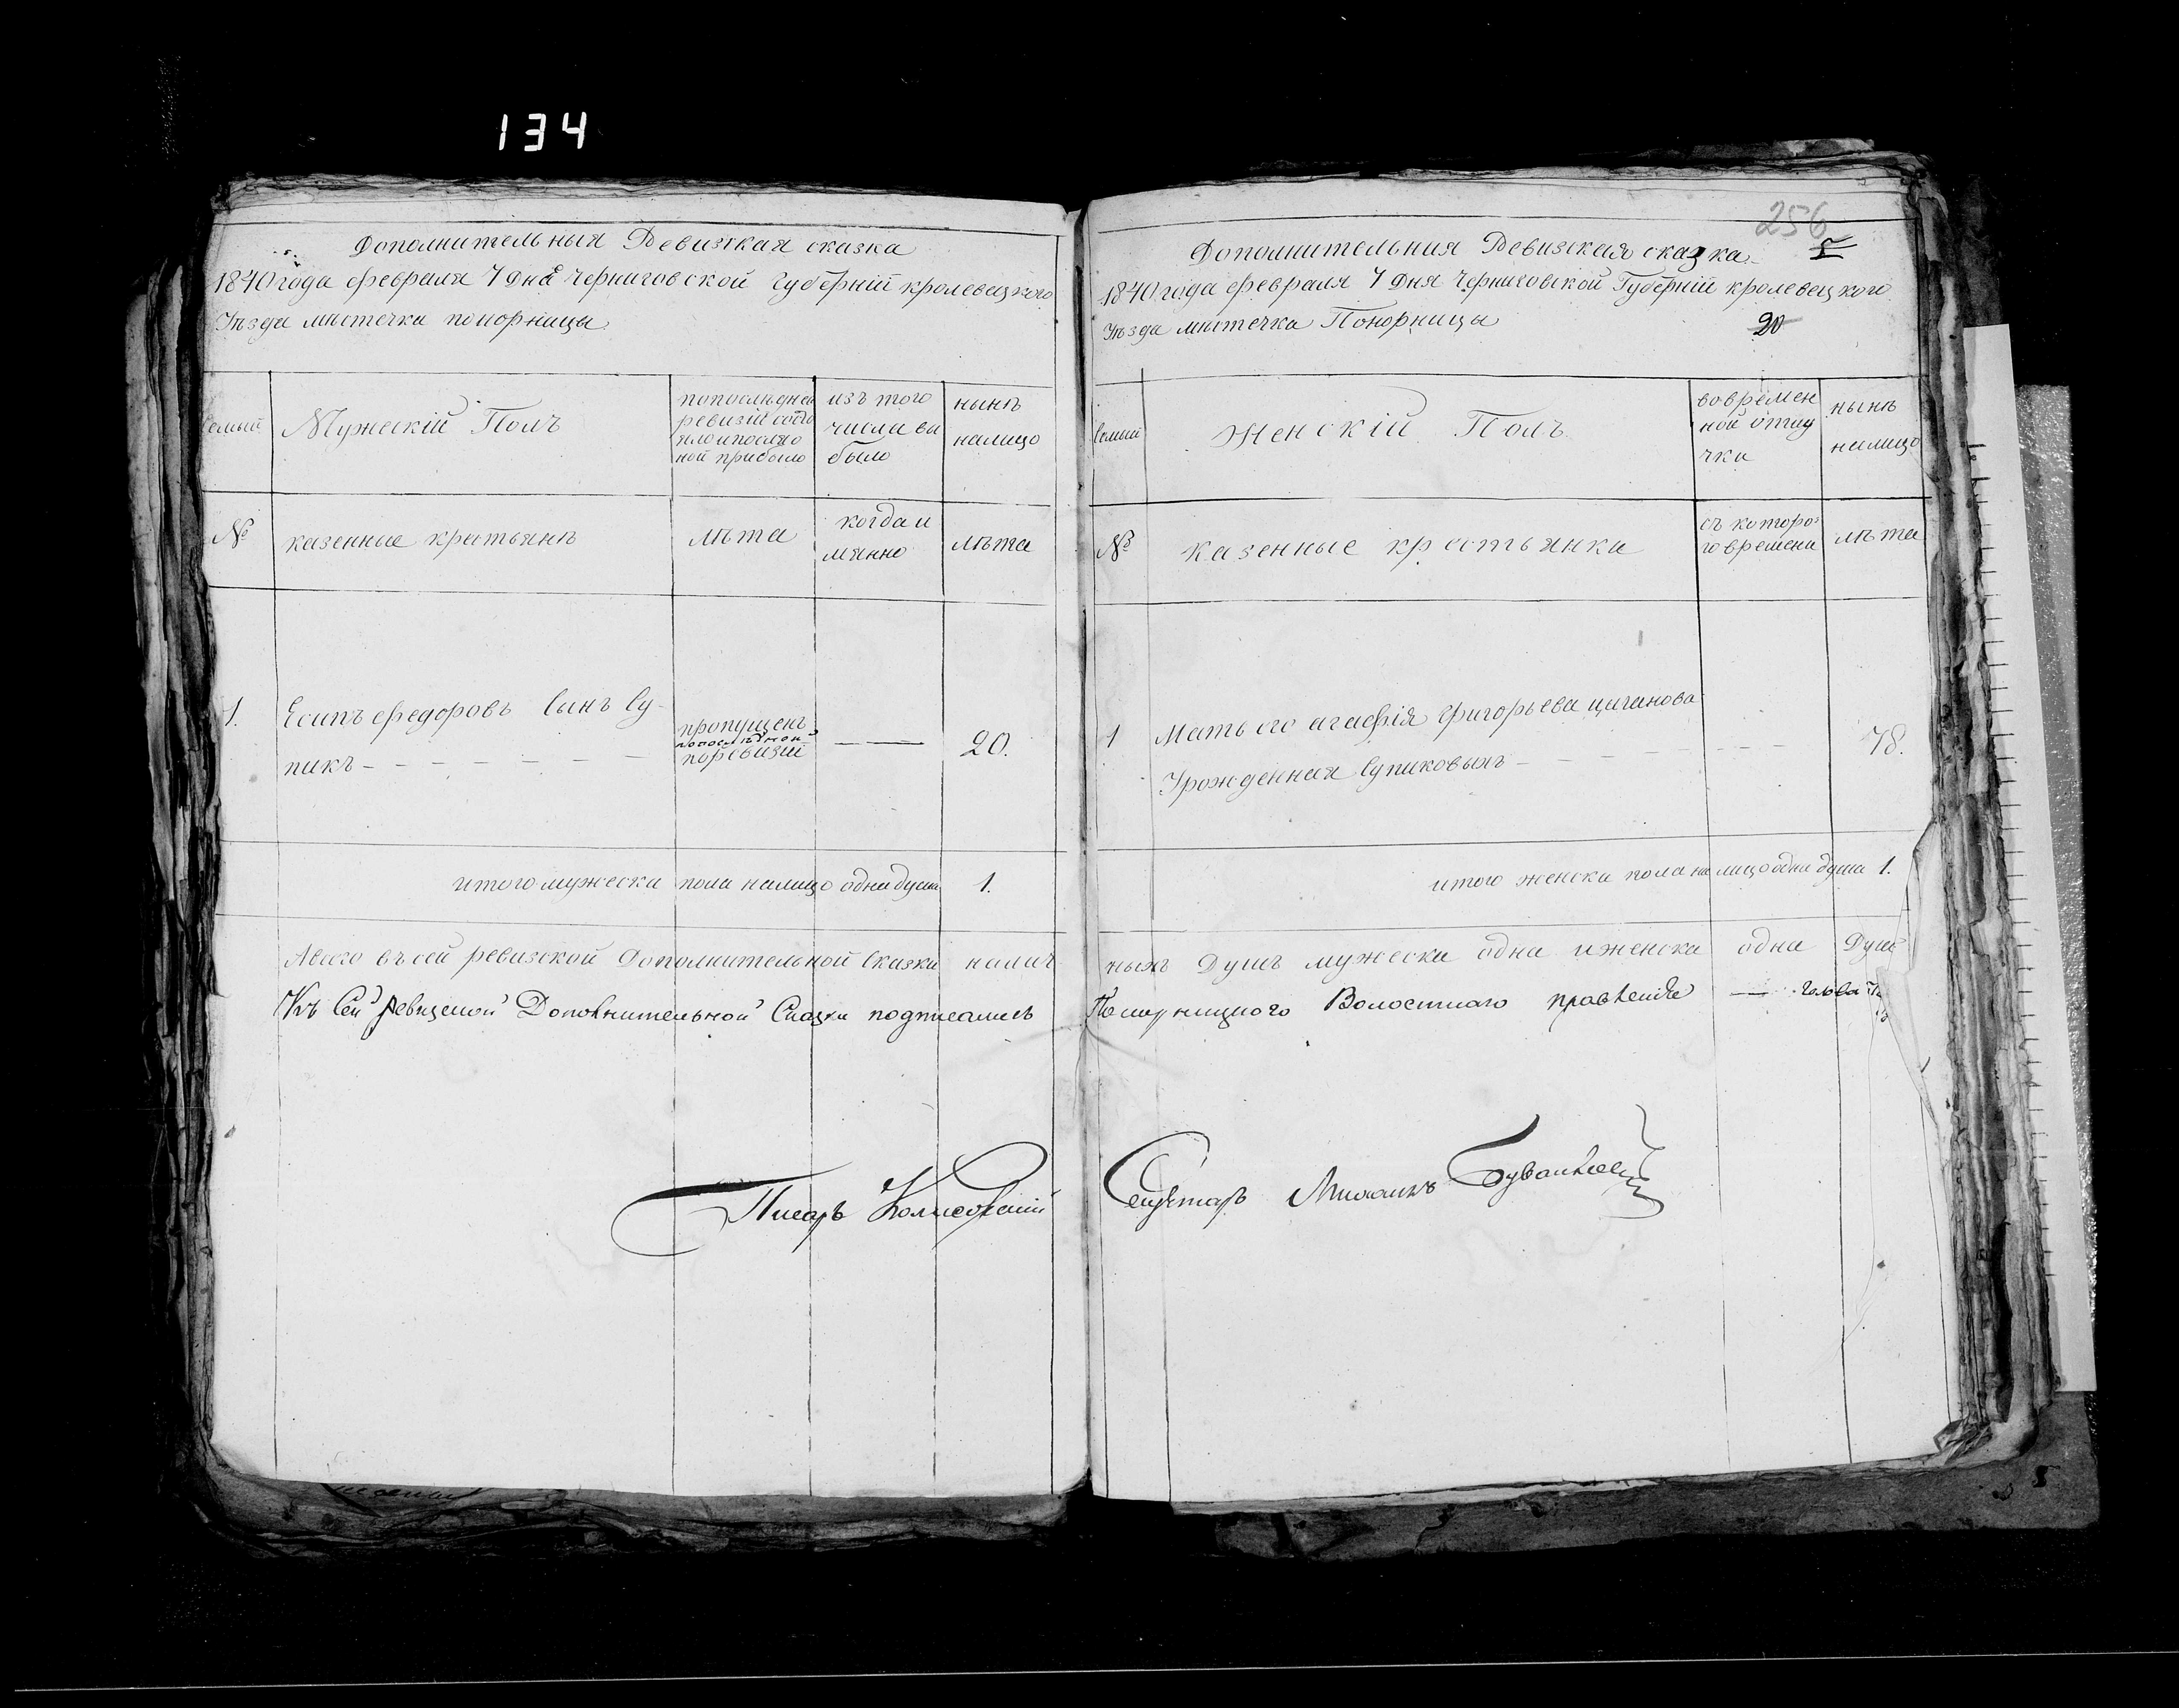 134
Дополнительныя Ревизткая сказка
1840 года февраля 7 дня Черниговской Губерніи кролевецкого
Уѣзда мистечка понорницы
Семьи
Мужескій Полъ
попослѣдней
ревизіи состо
яло и после о
ной прибыло
изъ того
числа вы
было
нынѣ
налицо
№
казенные крестьянѣ
лѣта
когда и
мянно
лѣта
1.
Есипъ Федоровъ Сынъ Су-
пикъ
пропущенъ
поревизіи
20.
итого мужеска пола налицо одна душа 1.
Авсего въ сей ревизской Дополнительной Сказки налич
Къ Сей Ревизской Дополнительной Сказки подписались
Писарь
256
Дополнительния Ревизская сказка
5
1840 года февраля 7 дня Черниговской Губерніи кролевецкого
Уѣзда мистечка Понорницы
20
Семьи
Женскій Полъ
вовремен
ной отлу
чки
нынѣ
налицо
№
Казенные крестьянки
съ которо
го времени
лѣта
1
Мать его агафія Григорьева циганова
Урожденная Супиковыхъ
78.
итого женска пола на лицо одна душа 1.
ныхъ Душъ мужеска одна иженска одна Душ
Волостного правленія
Секретарь Михаилъ